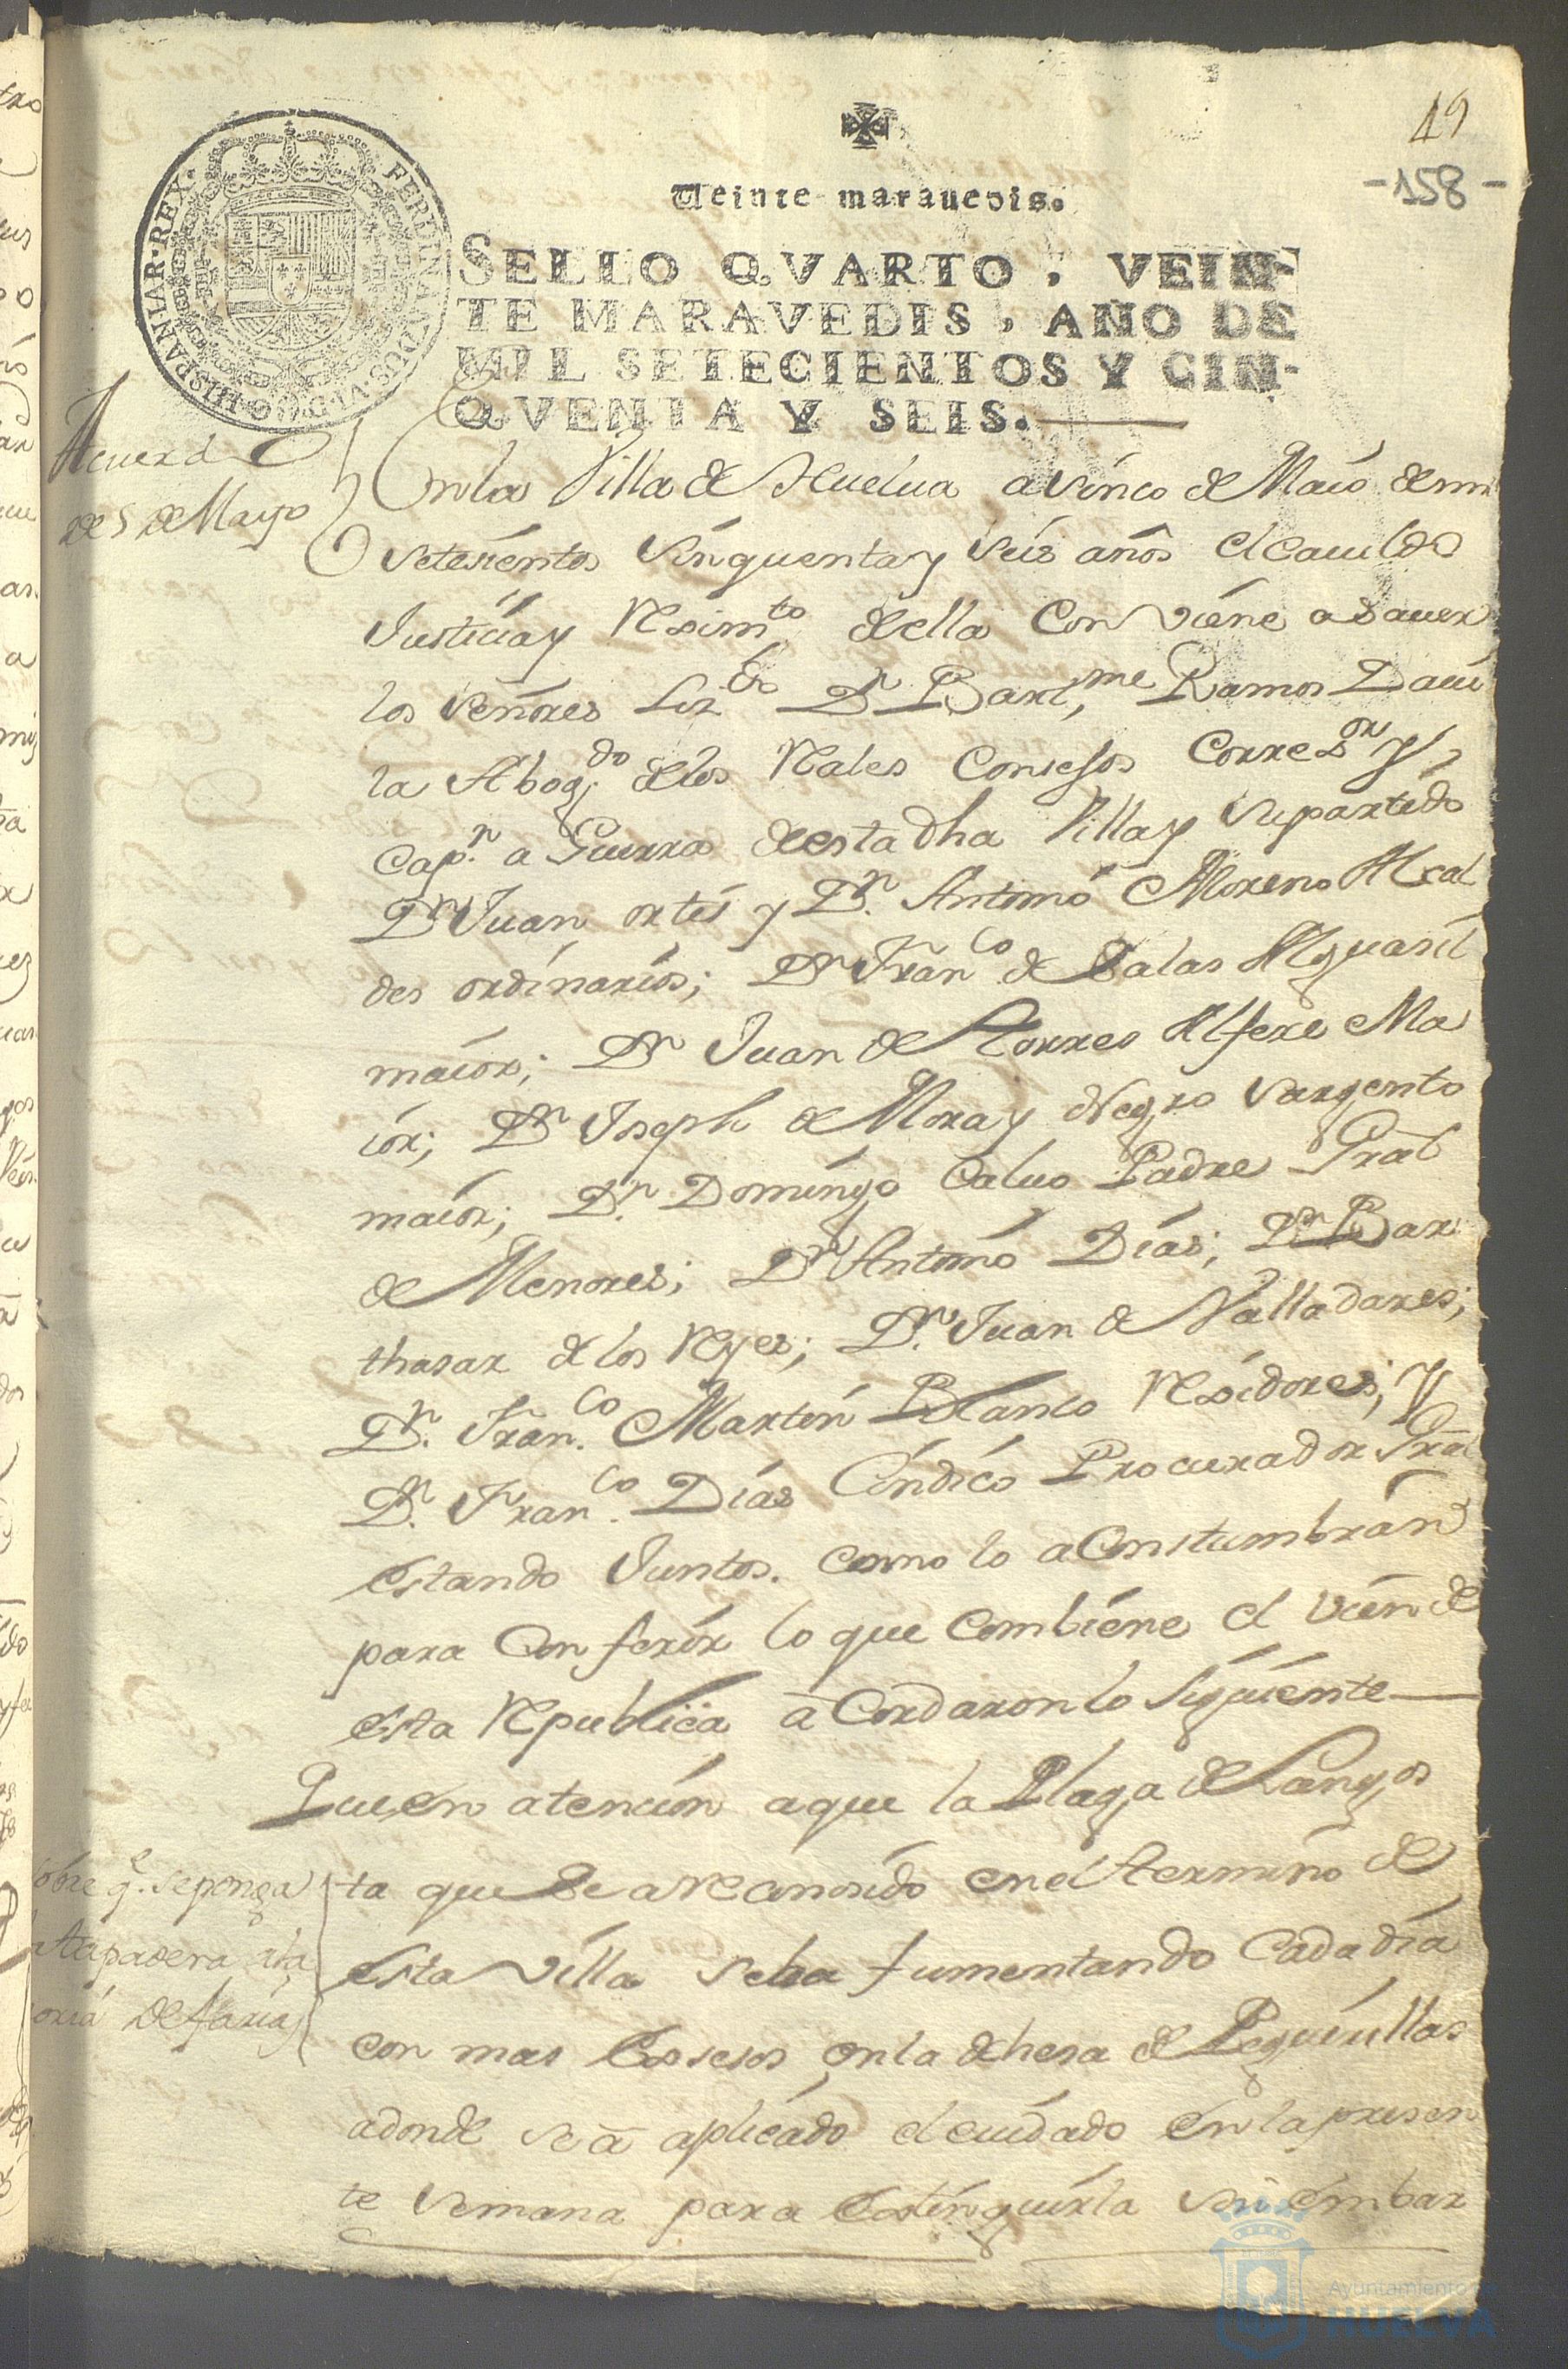 49
-158-
Veinte maravedis.
SELLO QVARTO, VEIN-
TE MARAVEDIS, AÑO DE
MIL SETECIENTOS Y CIN-
QVENTA Y SEIS.
FERDINANDUS·VI·D·G·HISPANIAR·REX·
Acuerdo
de 5 de Mayo
En la Villa de Huelua a sinco de Maio de mil
setesientos sinquenta y seis años el cauildo
Justicia y Reximto. della Conviene a sauer
los señores Lizdo Dn Bartme Ramos Daui
la Abogdo de los Rales Consejos Correxor y
Capn. a Guerra de esta dha Villa y su partido
Dn Juan ortis y Dn. Antonio Moreno Alcal
des ordinarios; Dn Franco de Salas Alguasil
maior; Dn Juan de Torres Alfere Ma
ior; Dn Joseph de Mora y Negro Sargento
maior; Dn. Domingo Caluo Padre Gral
de Menores; Dn Antonio Dias; Dn Bar
thasar de los Reyes; Dn. Juan de Valladares;
Dn. Franco. Martin Blanco Rexidores; Y
Dn. Franco. Dias Cindico Procurador Gral
estando Juntos. como lo aConstumbran
para Conferir lo que Combiene el vien de
esta Republica aCordaron lo siguiente
Que en atencion a que la Plaga de Langos
sobre qe. se ponga
ta que se a reconosido en el termino de
tapadera a la
esta villa se ba fumentando Cada dia
oria de farias
con mas Exsesos en la dehesa de Peguerillas
adonde se a aplicado el cuidado en la presen
te semana para Extinguirla sin embar
Ayuntamiento de
HUELVA